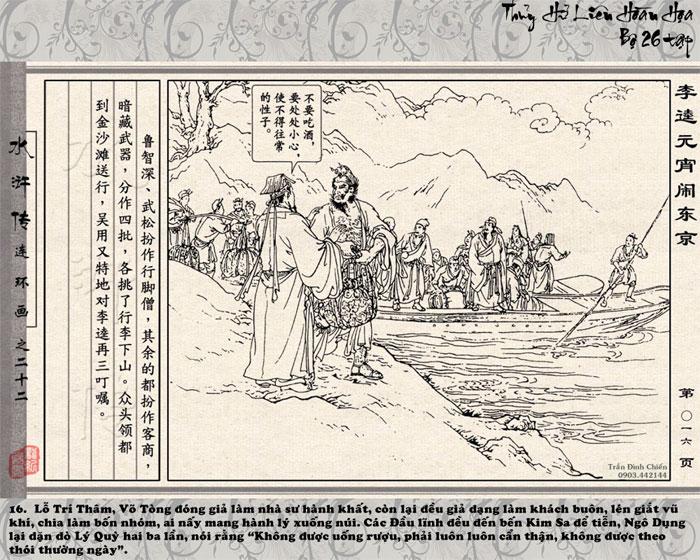 Thủy Hử Liên Hoàn Họa
Bộ 26 tập
李逵元宵闹东京
第〇一六页
不要吃酒，
要处处小心，
使不得往常
的性子。
鲁智深、武松扮作行脚僧，其余的都扮作客商，
暗藏武器，分作四批，各挑了行李下山。众头领都
到金沙滩送行，吴用又特地对李逵再三叮嘱。
水浒传连环画之二十二
Trần Đình Chiến
0903.442144
16. Lỗ Trí Thâm, Võ Tòng đóng giả làm nhà sư hành khất, còn lại đều giả dạng làm khách buôn, lên giắt vũ
khí, chia làm bốn nhóm, ai nấy mang hành lý xuống núi. Các Đầu lĩnh đều đến bến Kim Sa để tiễn, Ngô Dụng
lại dặn dò Lý Quỳ hai ba lần, nói rằng “Không được uống rượu, phải luôn luôn cẩn thận, không được theo
thói thường ngày”.